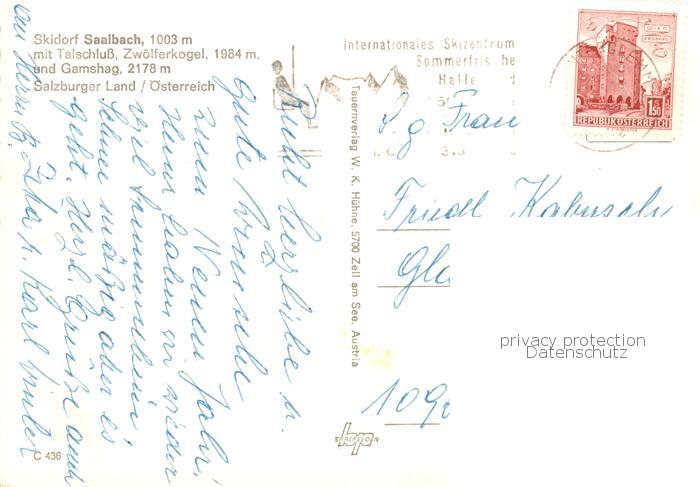 Skidorf Saalbach, 1003 m
mit Talschluß, Zwölferkogel, 1984 m,
und Gamshag, 2178 m
Salzburger Land / Österreich
Internationales Skizentrum
Sommerfris he
Halle
WIEN
ERDBERG
1.50
REPUBLIK ÖSTERREICH
Tauernverlag W. K. Hühne, 5700 Zell am See, Austria
S. g. Frau
Friedl
Gla
109
privacy protection
Datenschutz
herzliche u.
gute Wünsche
zum Neuen Jahr!
Heuer haben wir wieder
viel
Schnee mäßig aber es
geht. Herzl. Grüße auch
an Herrn
u. Karl
SAALFELDEN
C 436